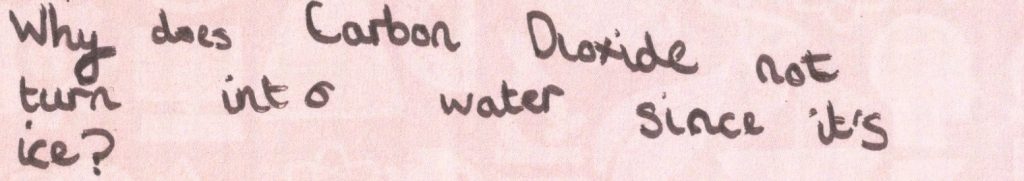 Why does Carbon Dioxide not
turn into water since it's
ice?